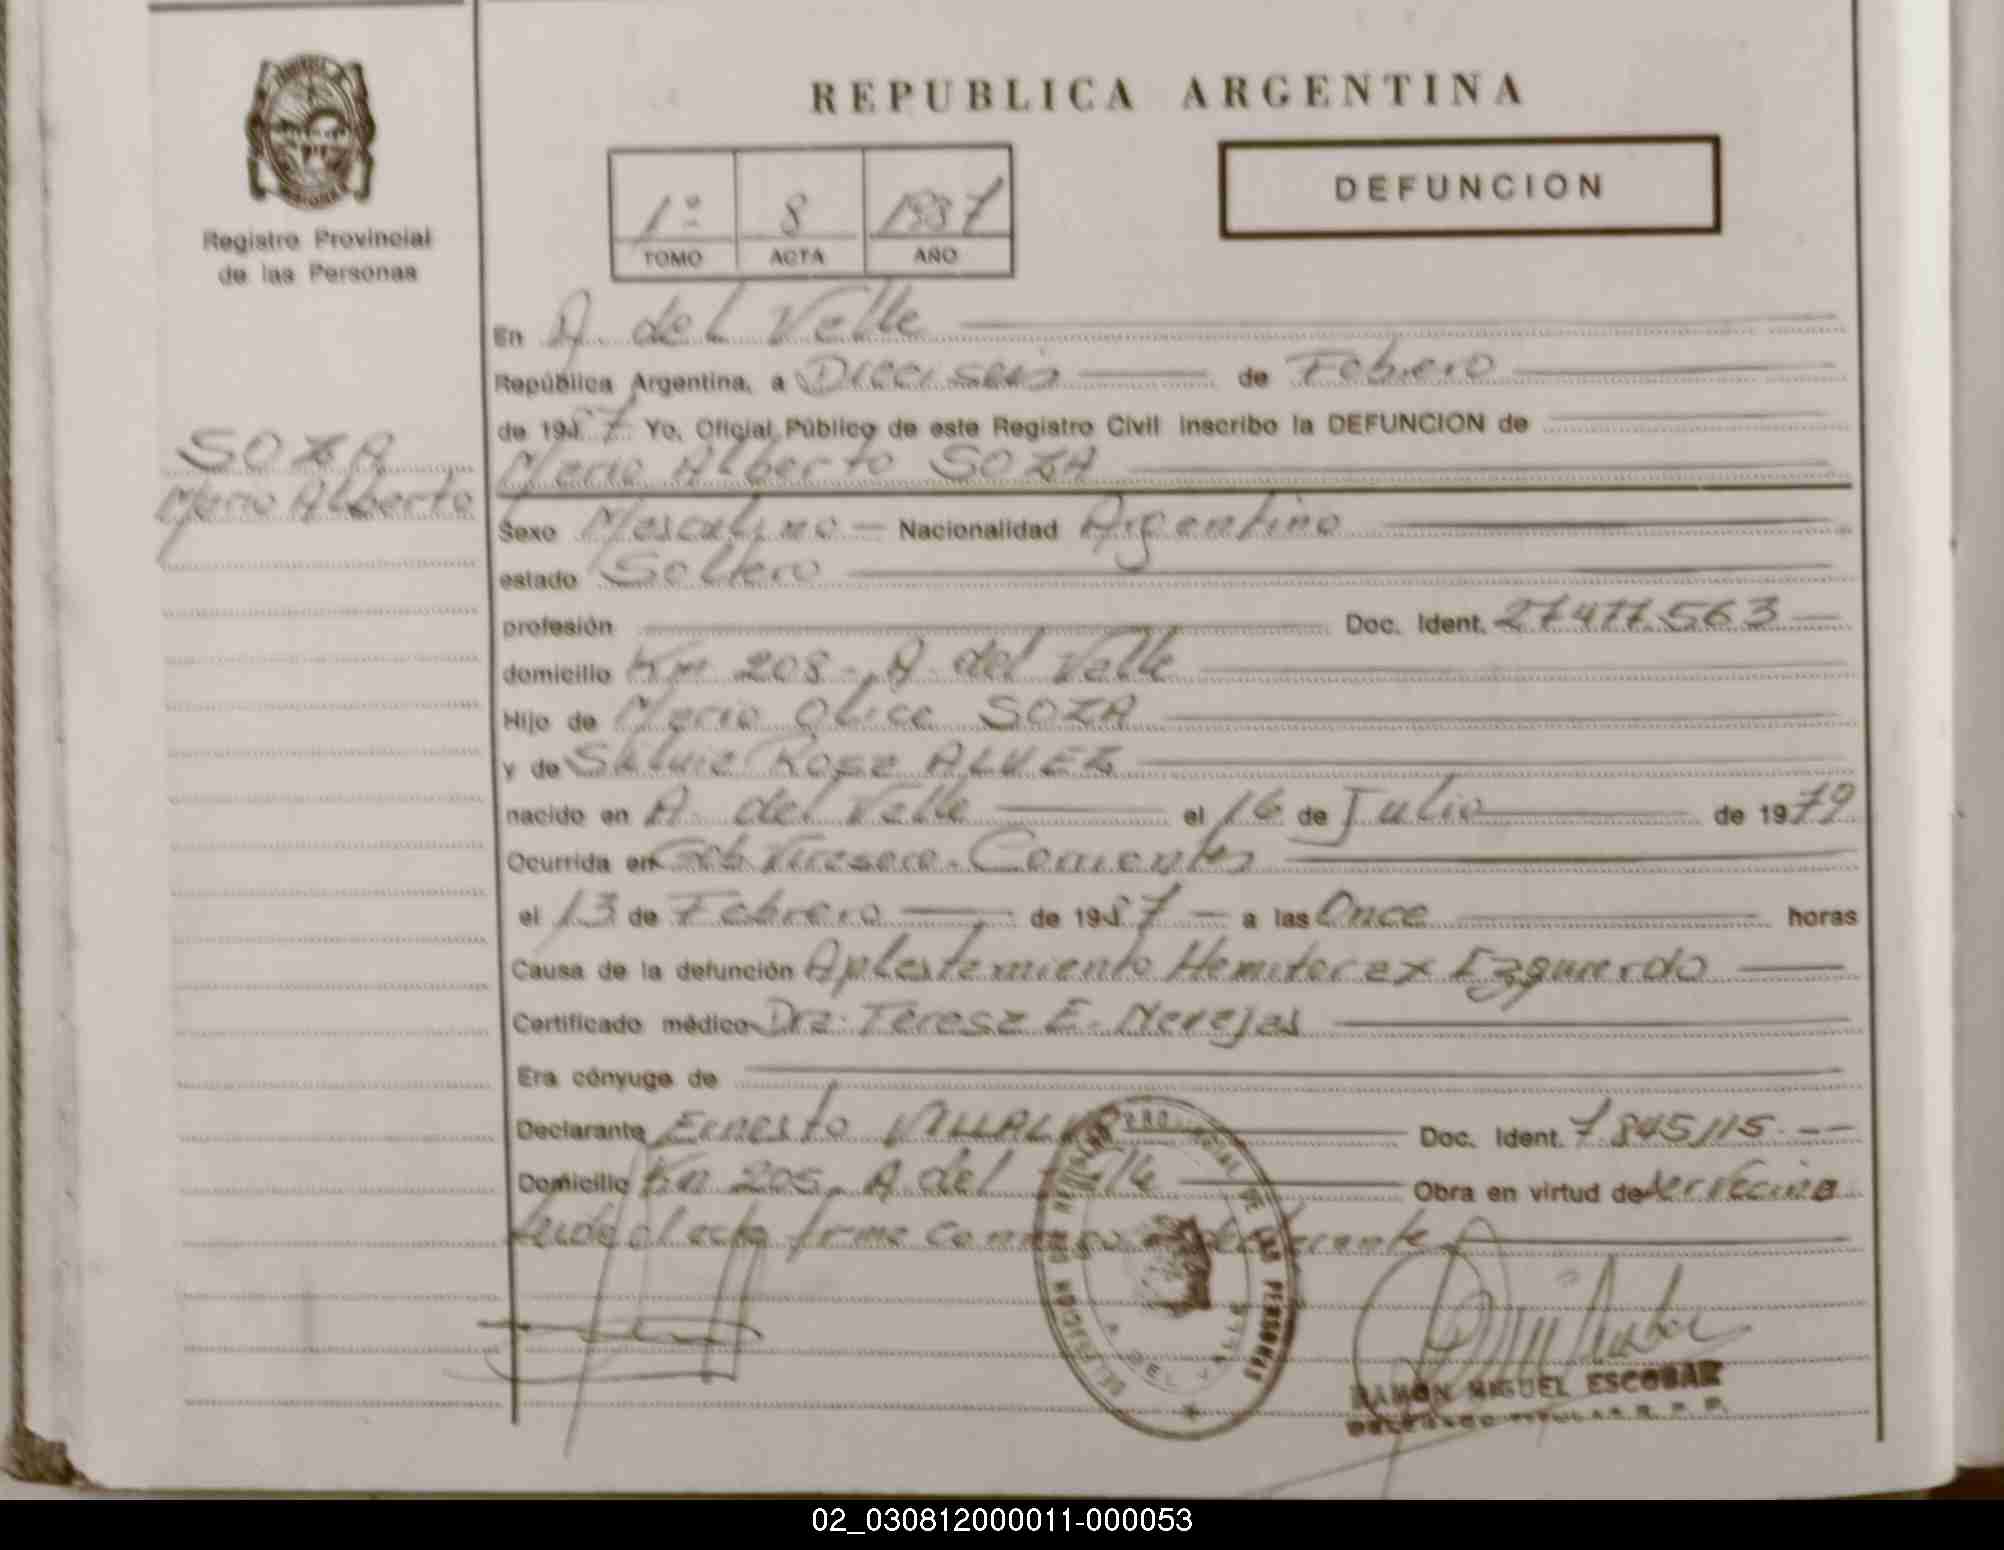 REPUBLICA ARGENTINA
Registro Provincial
de las Personas
1º 8 1987
TOMO ACTA AÑO
DEFUNCION
SOZA
Mario Alberto
En A. del Valle
República Argentina, a Dieciseis de Febrero
de 1987 Yo, Oficial Público de este Registro Civil inscribo la DEFUNCION de
Mario Alberto SOZA
Sexo Masculino Nacionalidad Argentino
estado Soltero
profesión Doc. Ident. 27477.563
domicilio Km 208 - A. del Valle
Hijo de Mario SOZA
y de Silvia Rosa ALVEZ
nacido en A. del Valle el 16 de Julio de 1979
Ocurrida en Gob. Virasoro - Corrientes
el 13 de Febrero de 1987 a las Once horas
Causa de la defunción Aplastamiento Hemitorax Izquierdo
Certificado médico Dra. Teresa E.
Era cónyuge de
Declarante Ernesto Doc. Ident. 7.845115
Domicilio Km 205, A del Valle Obra en virtud de ser vecino
Leida el acta firma conmigo el declarante
RAMON MIGUEL ESCOBAR
DELEGADO TITULAR R. P. P.
02_030812000011-000053